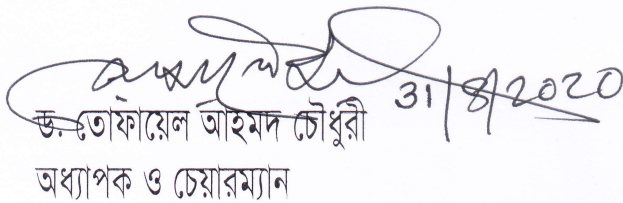 31/8/2020
ড. তোফায়েল আহমদ চৌধুরী
অধ্যাপক ও চেয়ারম্যান